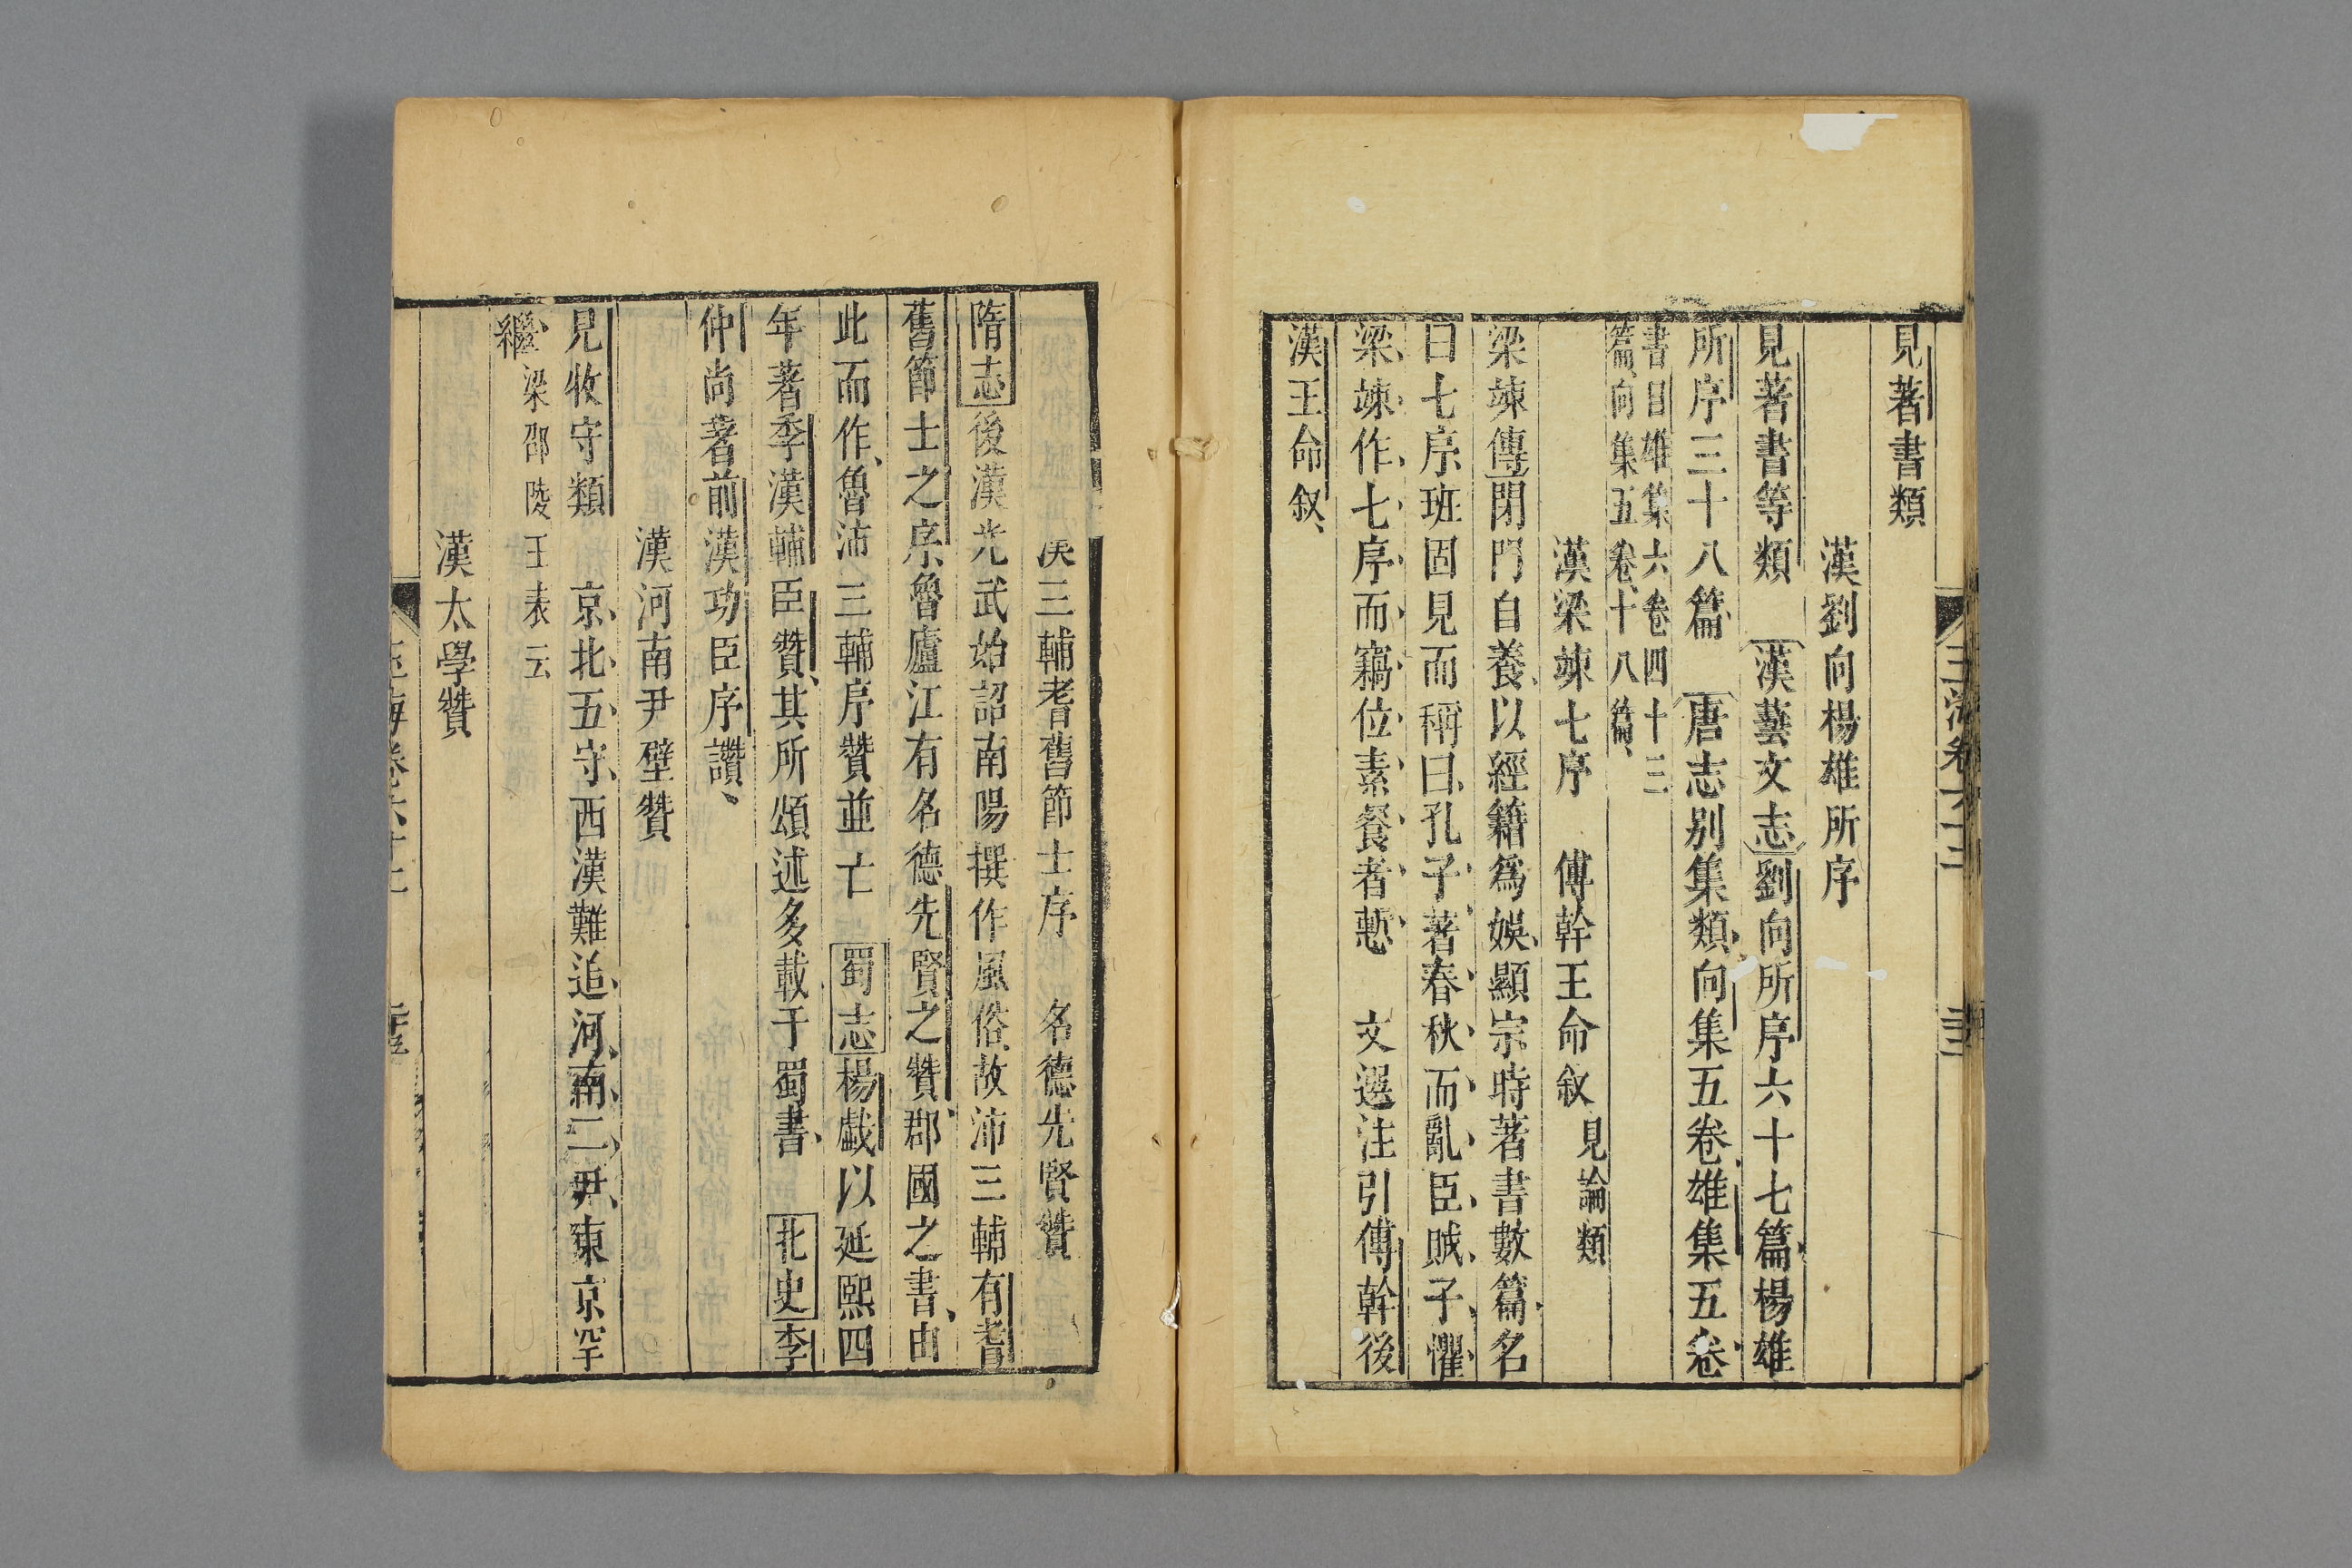 見著書類
漢劉向楊雄所序
見著書等類 漢藝文志劉向所序六十七篇楊雄
所序三十八篇 唐志別集類向集五卷雄集五卷
書目雄集六卷四十三
篇向集五卷十八篇
漢梁竦七序 傅幹王命叙見論類
梁竦傳閉門自養以經籍爲娛顯宗時著書數篇名
曰七序班固見而稱曰孔子著春秋而亂臣賊子懼
梁竦作七序而竊位素餐者慙 文選注引傅幹後
漢王命叙
漢三輔耆舊節士序 名德先賢贊
隋志後漢光武始詔南陽撰作風俗故沛三輔有耆
舊節士之序魯廬江有名德先賢之贊郡國之書由
此而作魯沛三輔序贊並亡 蜀志楊戲以延熙四
年著季漢輔臣贊其所頌述多載于蜀書 北史李
仲尚著前漢功臣序讚
漢河南尹壁贊
見牧守類 京北五守西漢難追河南二尹東京罕
繼梁邵陵王表云
漢太學贊